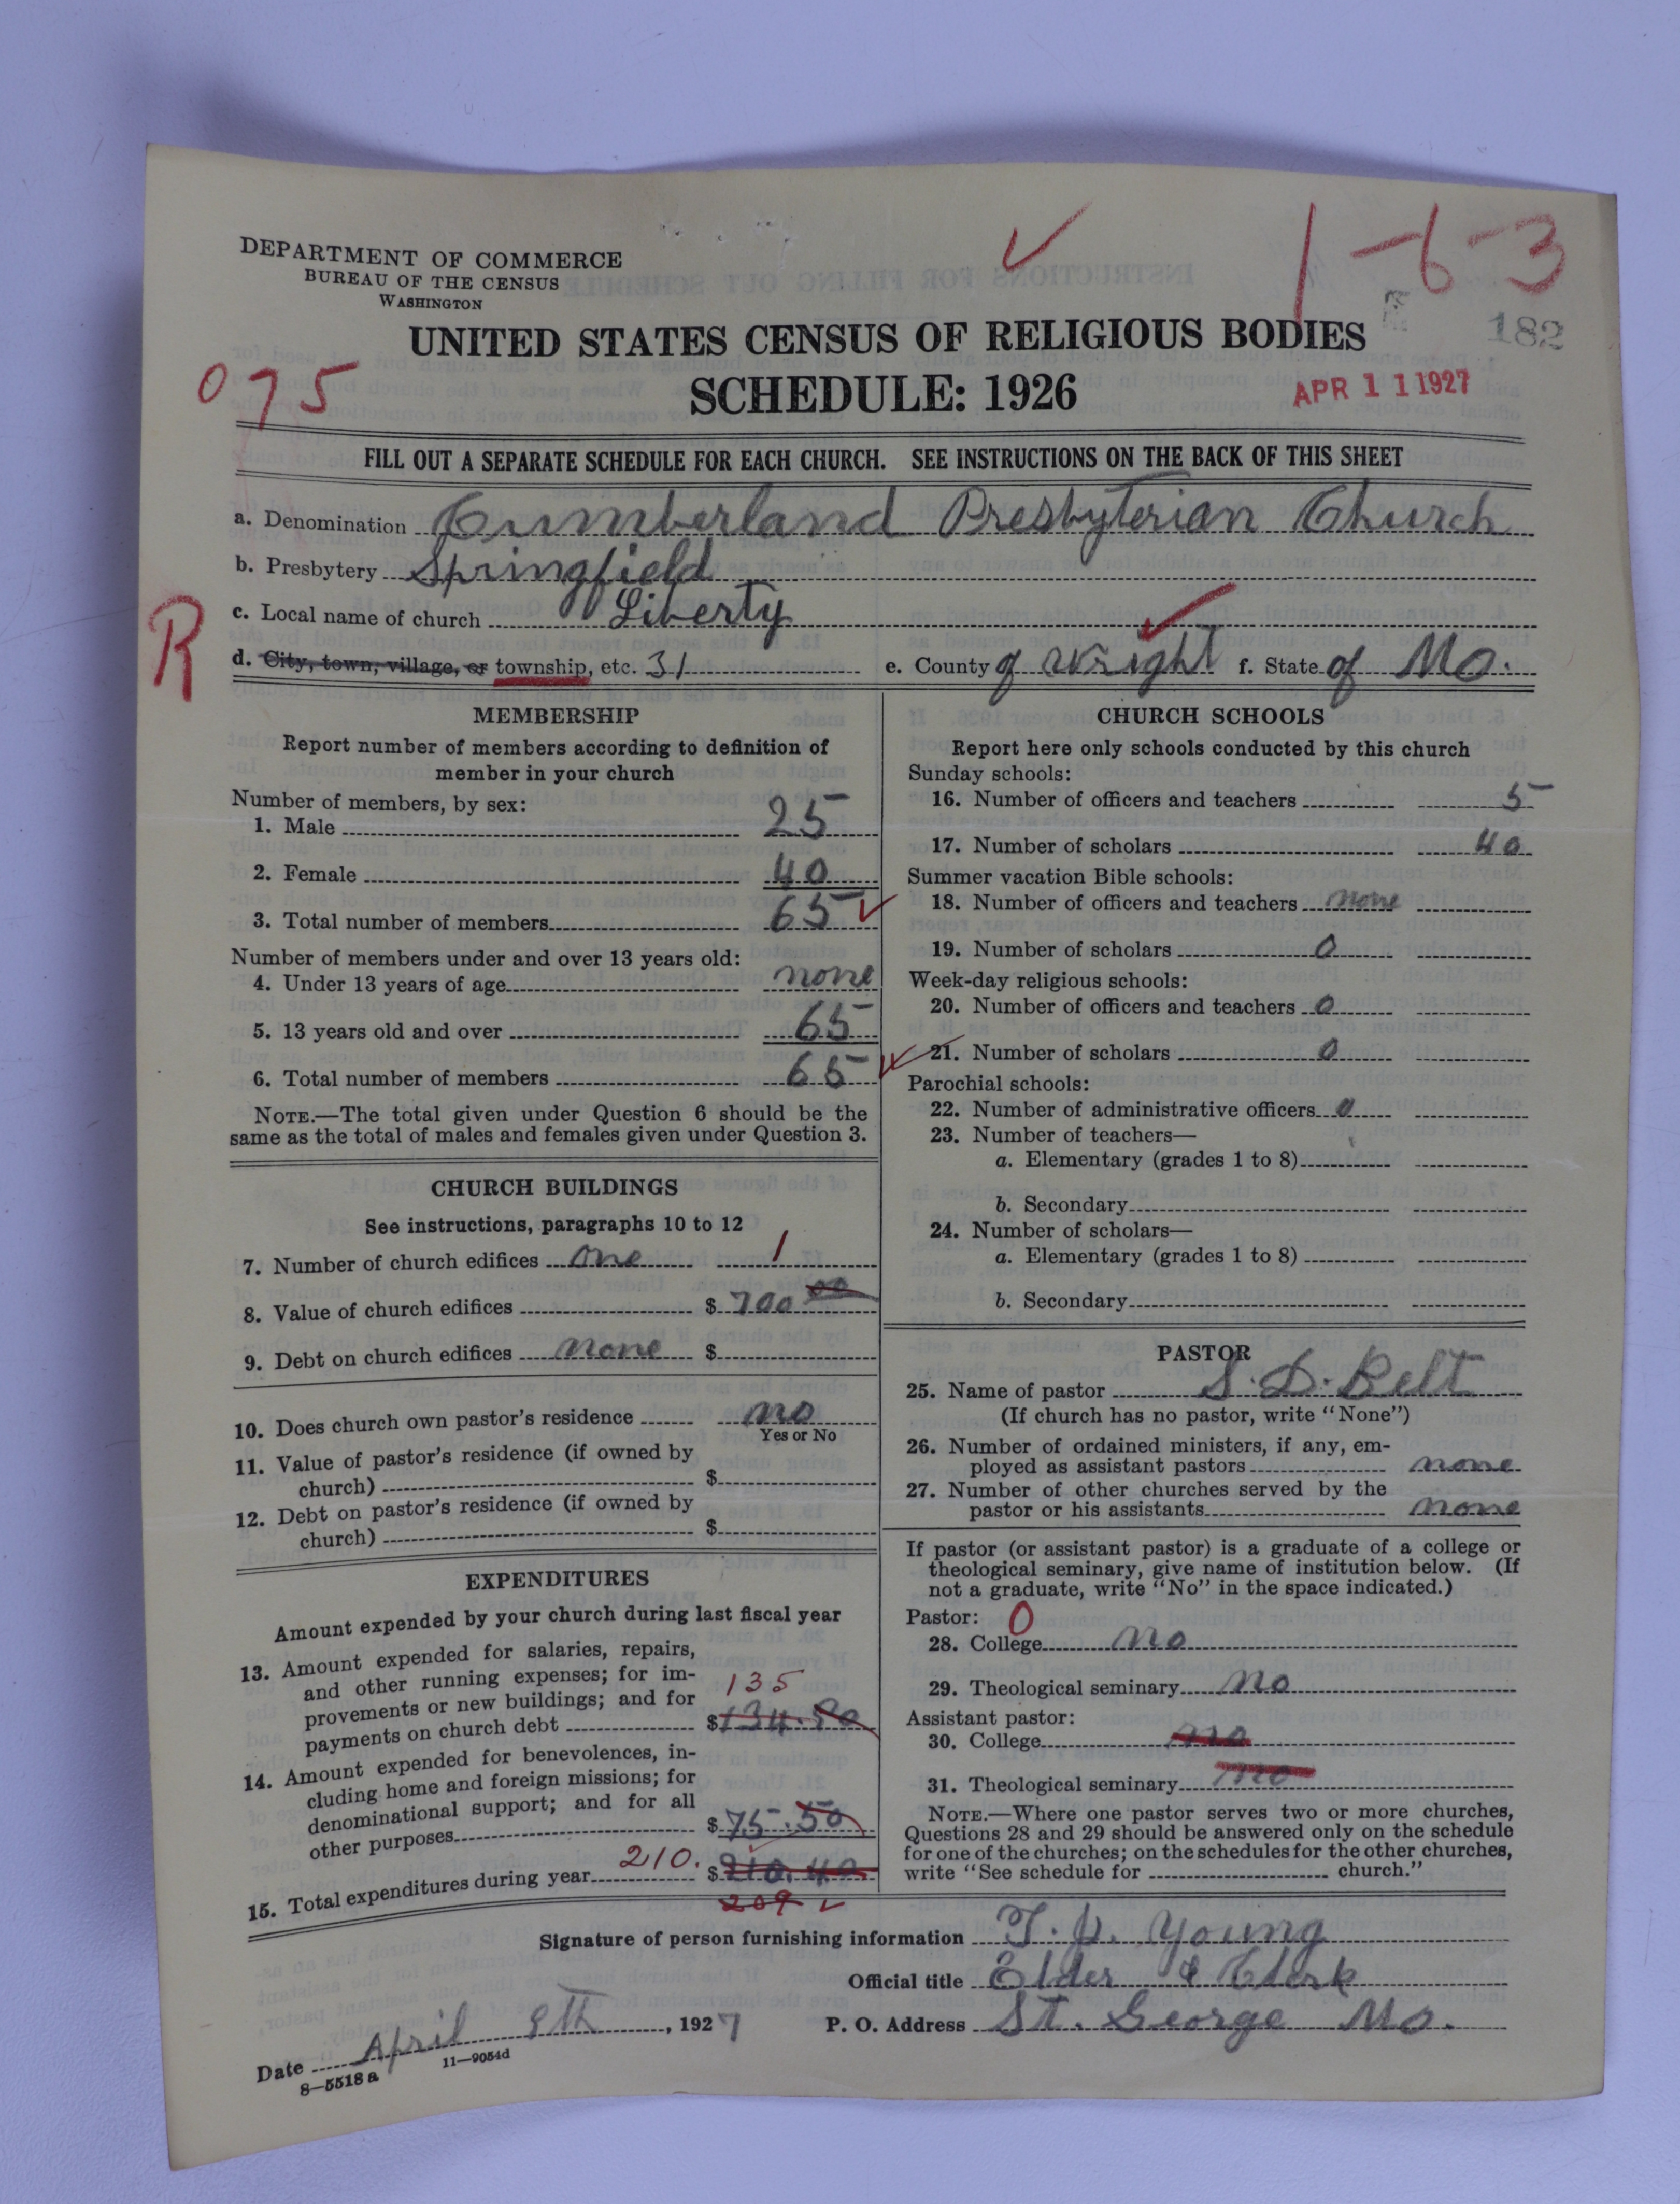 1-6-3
DEPARTMENT OF COMMERCE
BUREAU OF THE CENSUS
WASHINGTON
182
UNITED STATES CENSUS OF RELIGIOUS BODIES
075
SCHEDULE: 1926
APR 11 1927
FILL OUT A SEPARATE SCHEDULE FOR EACH CHURCH. SEE INSTRUCTIONS ON THE BACK OF THIS SHEET
a. Denomination Cumberland Presbyterian Church
b. Presbytery Springfield
R
c. Local name of church Liberty
d. City, town, village, or township, etc. 31 e. County of Wright f. State of Mo.
MEMBERSHIP
Report number of members according to definition of
member in your church
Number of members, by sex:
1. Male 25
2. Female 40
3. Total number of members 65
Number of members under and over 13 years old:
4. Under 13 years of age none
5. 13 years old and over 65
6. Total number of members 65
NOTE.—The total given under Question 6 should be the
same as the total of males and females given under Question 3.
CHURCH BUILDINGS
See instructions, paragraphs 10 to 12
7. Number of church edifices one 1
8. Value of church edifices $ 700 00
9. Debt on church edifices none $
10. Does church own pastor's residence no
Yes or No
11. Value of pastor's residence (if owned by
church) $
12. Debt on pastor's residence (if owned by
church) $
EXPENDITURES
Amount expended by your church during last fiscal year
13. Amount expended for salaries, repairs,
and other running expenses; for im-
provements or new buildings; and for 135
payments on church debt $ 134.90
14. Amount expended for benevolences, in-
cluding home and foreign missions; for
denominational support; and for all
other purposes $ 75.50
15. Total expenditures during year 210. $ 210.40
209
CHURCH SCHOOLS
Report here only schools conducted by this church
Sunday schools:
16. Number of officers and teachers 5
17. Number of scholars 40
Summer vacation Bible schools:
18. Number of officers and teachers none
19. Number of scholars 0
Week-day religious schools:
20. Number of officers and teachers 0
21. Number of scholars 0
Parochial schools:
22. Number of administrative officers 0
23. Number of teachers—
a. Elementary (grades 1 to 8)
b. Secondary
24. Number of scholars—
a. Elementary (grades 1 to 8)
b. Secondary
PASTOR
25. Name of pastor S. D. Belt
(If church has no pastor, write "None")
26. Number of ordained ministers, if any, em-
ployed as assistant pastors none
27. Number of other churches served by the
pastor or his assistants none
If pastor (or assistant pastor) is a graduate of a college or
theological seminary, give name of institution below. (If
not a graduate, write "No" in the space indicated.)
Pastor: 0
28. College no
29. Theological seminary no
Assistant pastor:
30. College no
31. Theological seminary no
NOTE.—Where one pastor serves two or more churches,
Questions 28 and 29 should be answered only on the schedule
for one of the churches; on the schedules for the other churches,
write "See schedule for church."
Signature of person furnishing information Young
Official title Elder & Clerk
Date April 9th, 1927 P. O. Address St. George Mo.
8—5518a 11—9054d